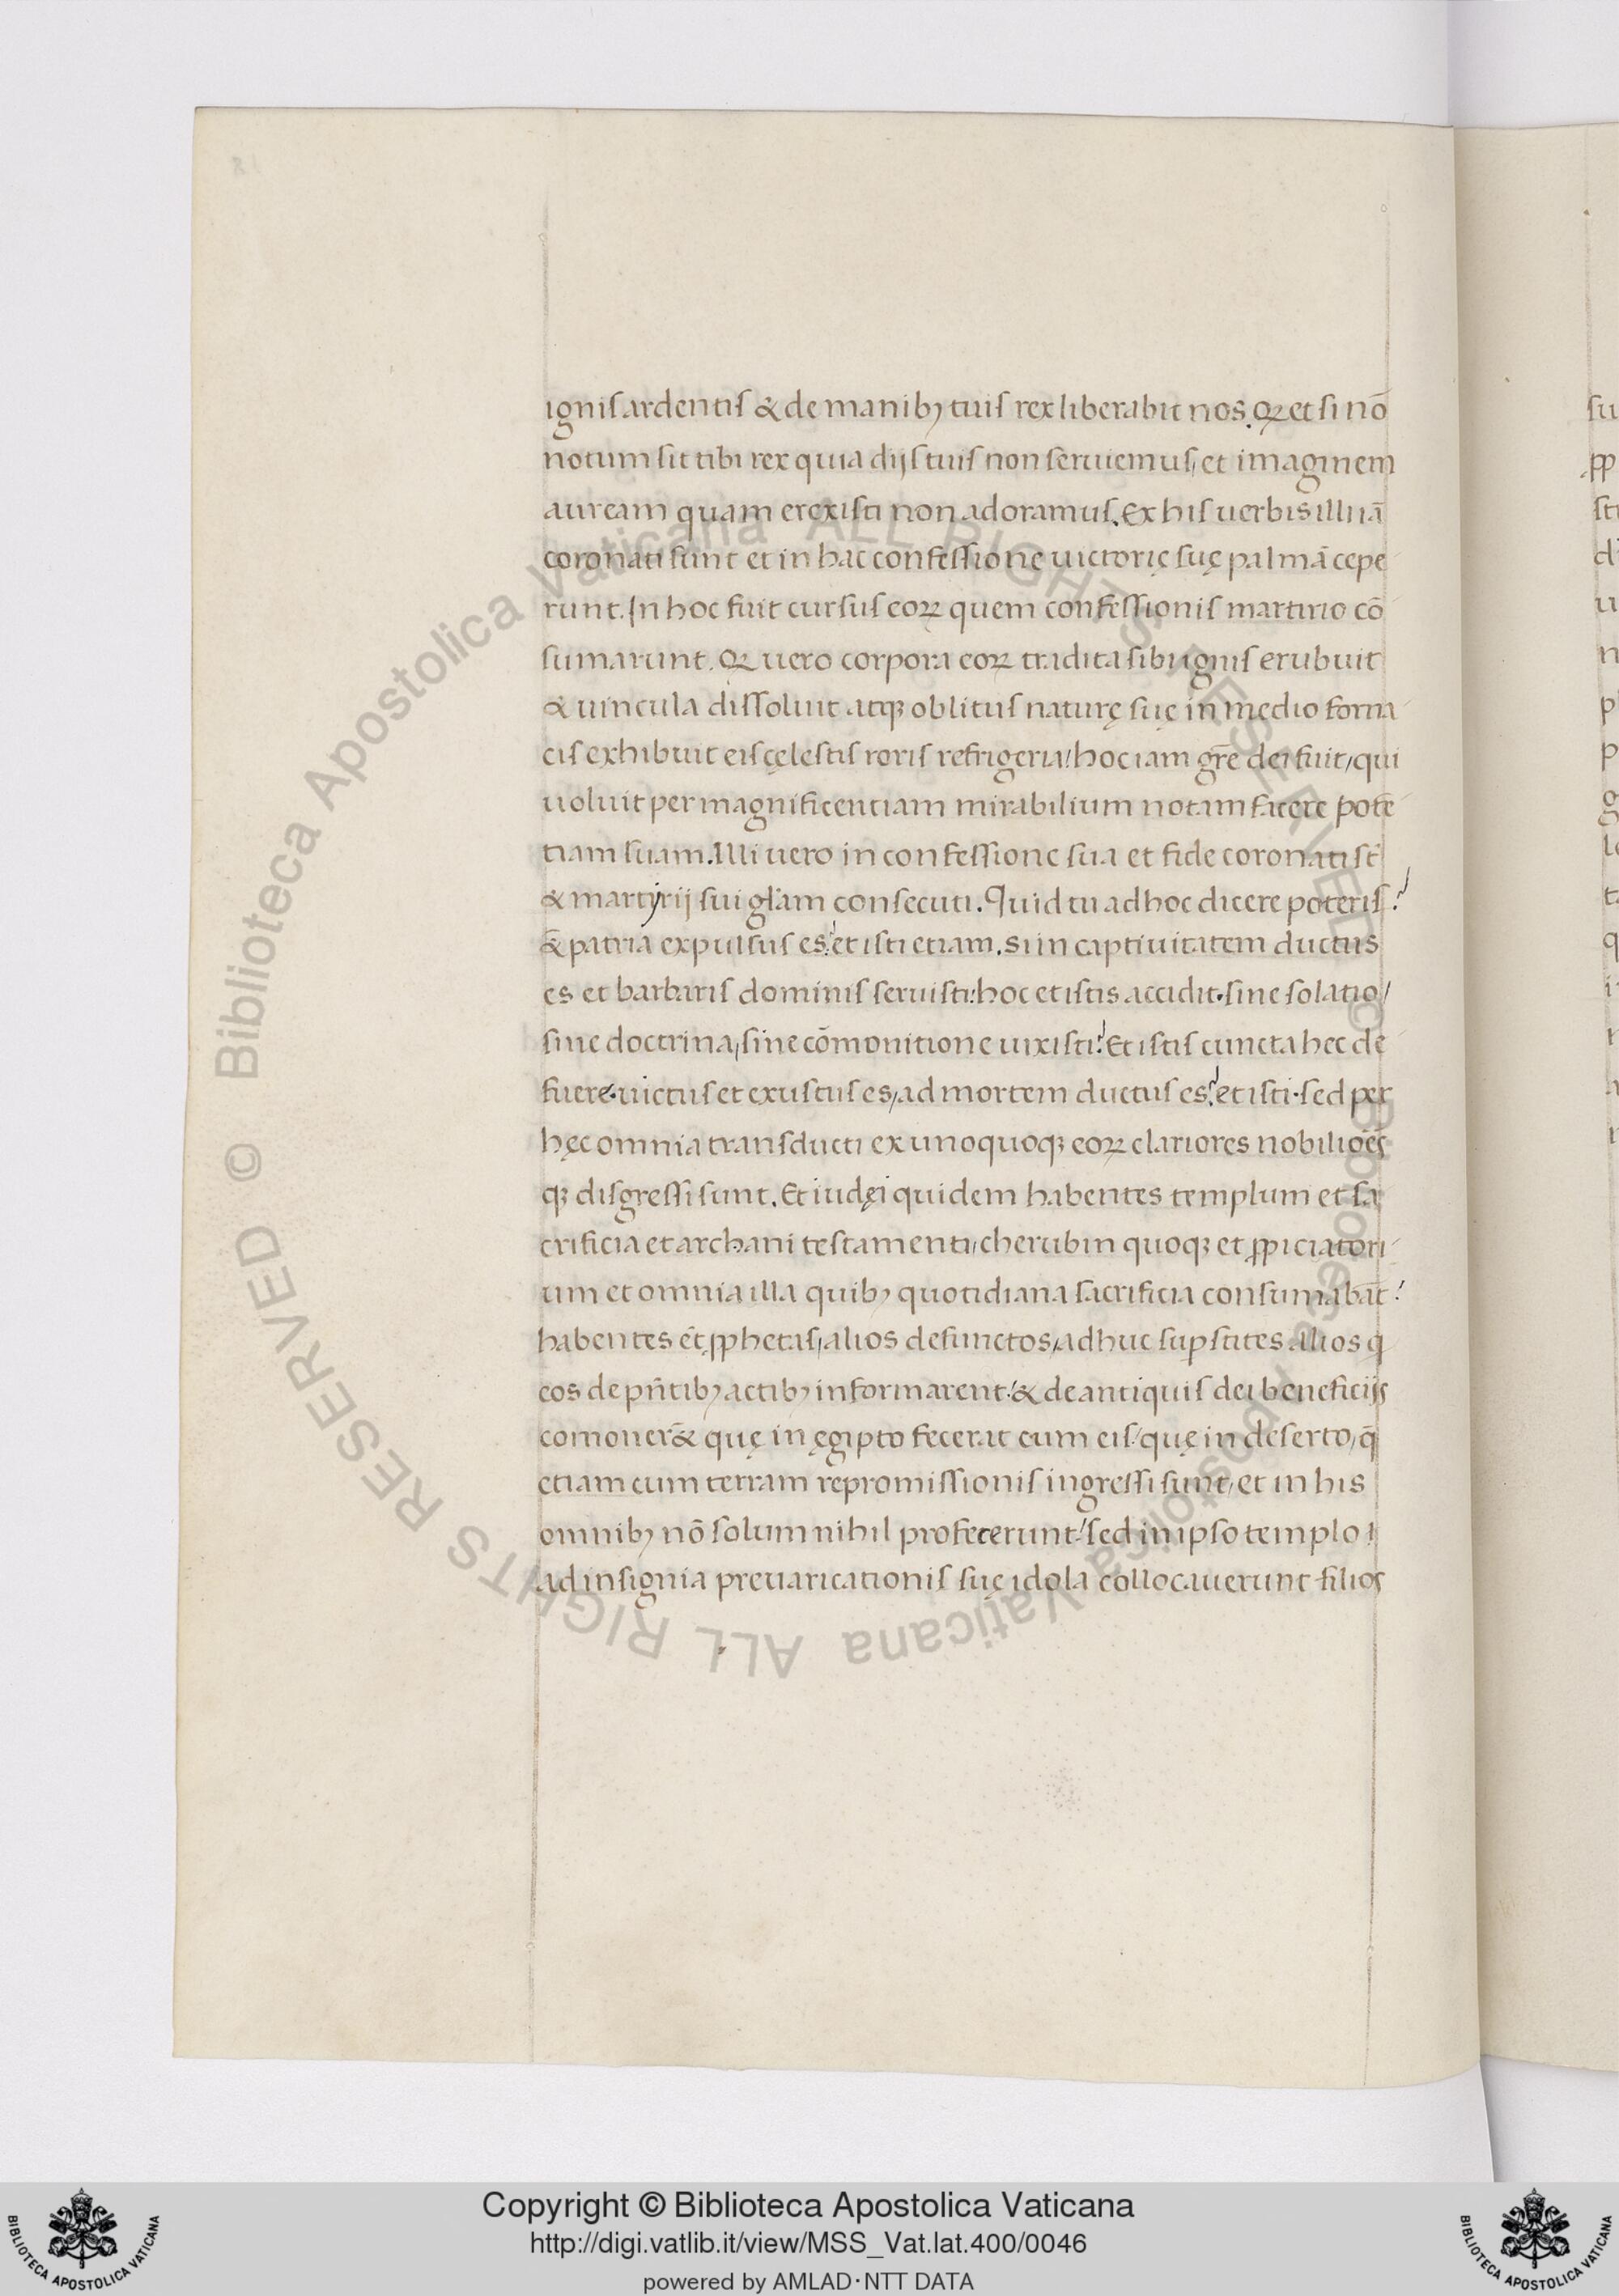 ignis ardentis & de manib; tuis rex liberabit nos. Qꝫ et si nō
notum sit tibi rex quia dijs tuis non seruiemus, et imaginem
auream quam erexisti non adoramus. Ex his uerbis illi iā
coronati sunt et in hac confessione uictorię suę palmā cepe
runt. In hoc fuit cursus eoꝝ quem confessionis martirio cō
sumarunt. Qꝫ uero corpora eoꝝ tradita sibi ignis erubuit
& uincula dissoluit atqꝫ oblitus naturę suę in medio forna
cis exhibuit eis cęlestis roris refrigeria! hoc iam gr̄e dei fuit, qui
uoluit per magnificentiam mirabilium notam facere potē
tiam suam. Illi uero in confessione sua et fide coronati st̄
& martyrij sui gl̄am consecuti. Quid tu ad hoc dicere poteris?
& patria expulsus es? et isti etiam. Si in captiuitatem ductus
es et barbaris dominis seruisti: hoc et istis accidit. sine solatio,
sine doctrina, sine cōmonitione uixisti? Et istis cuncta hec de
fuere. uictus et exustus es, ad mortem ductus es? et isti. sed per
hęc omnia transducti ex unoquoqꝫ eoꝝ clariores nobilior̄es
qꝫ disgressi sunt. Et iudęi quidem habentes templum et sa
crificia et archani testamenti, cherubin quoqꝫ et ꝓpiciatori
um et omnia illa quib; quotidiana sacrificia consumabāt!
habentes et̄ ꝓphetas, alios defunctos, adhuc suꝑstites alios q
eos de pn̄tib; actib; informarent! & de antiquis dei beneficijs
comoner& quę in ęgipto fecerat cum eis! quę in deserto, q̄
etiam cum terram repromissionis ingressi sunt, et in his
omnib; nō solum nihil profecerunt! sed in ipso templo!
ad insignia preuaricationis suę idola collocauerunt filios
Copyright © Biblioteca Apostolica Vaticana
http://digi.vatlib.it/view/MSS_Vat.lat.400/0046
powered by AMLAD·NTT DATA